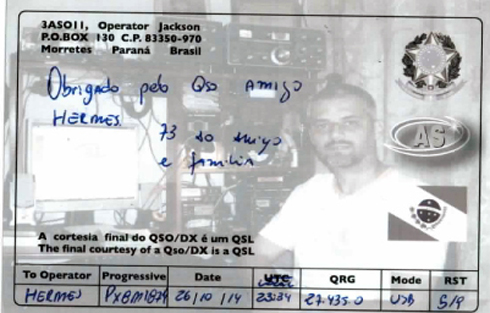 3ASO11, Operator Jackson
P.O.BOX 130 C.P. 83350-970
Morretes Paraná Brasil
Obrigado pelo Qso Amigo
HERMES.
73 ao amigo
e família
AS
A cortesia final do QSO/DX é um QSL
The final courtesy of a Qso/DX is a QSL
To Operator Progressive Date UTC QRG Mode RST
HERMES 26/10/14 23:34 27.435.0 USB 5/9